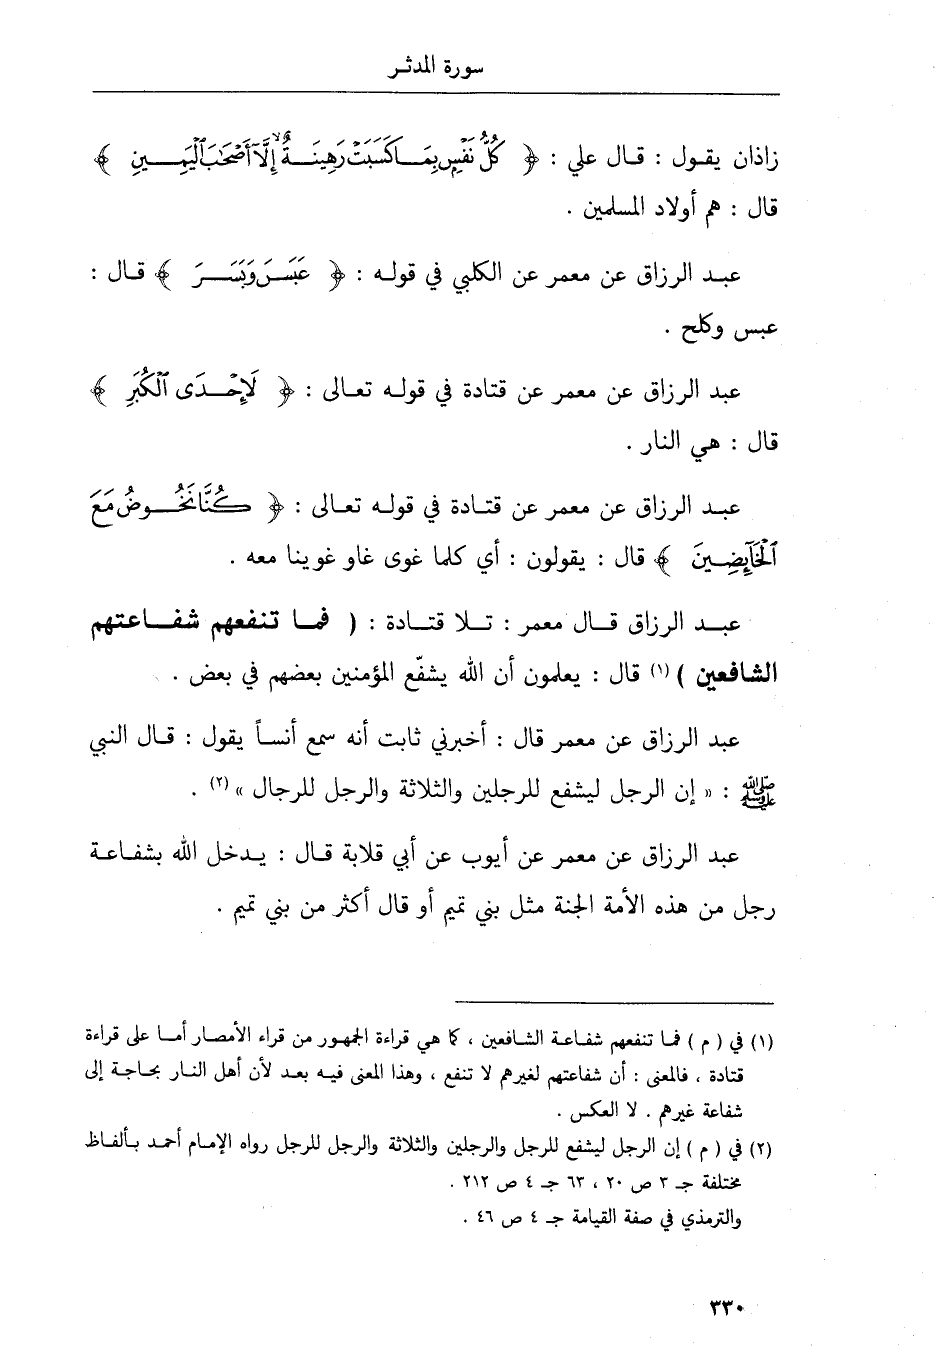 سورة المدثر
زاذان يقول : قال علي : ﴿ كُلُّ نَفْسٍ بِمَا كَسَبَتْ رَهِينَةٌ إِلَّا أَصْحَابَ الْيَمِينِ ﴾
قال : هم أولاد المسلمين .
عبد الرزاق عن معمر عن الكلبي في قوله : ﴿ عَبَسَ وَبَسَرَ ﴾ قال :
عبس وكلح .
عبد الرزاق عن معمر عن قتادة في قوله تعالى : ﴿ لَإِحْدَى الْكُبَرِ ﴾
قال : هي النار .
عبد الرزاق عن معمر عن قتادة في قوله تعالى : ﴿ كُنَّا نَخُوضُ مَعَ
الْخَائِضِينَ ﴾ قال : يقولون : أي كلما غوى غاو غوينا معه .
عبد الرزاق قال معمر : تلا قتادة : ( فما تنفعهم شفاعتهم
الشافعين ) (١) قال : يعلمون أن الله يشفّع المؤمنين بعضهم في بعض .
عبد الرزاق عن معمر قال : أخبرني ثابت أنه سمع أنساً يقول : قال النبي
ﷺ : « إن الرجل ليشفع للرجلين والثلاثة والرجل للرجال » (٢) .
عبد الرزاق عن معمر عن أيوب عن أبي قلابة قال : يدخل الله بشفاعة
رجل من هذه الأمة الجنة مثل بني تميم أو قال أكثر من بني تميم .
(١) في ( م ) فما تنفعهم شفاعة الشافعين ، كما هي قراءة الجمهور من قراء الأمصار أما على قراءة
قتادة ، فالمعنى : أن شفاعتهم لغيرهم لا تنفع ، وهذا المعنى فيه بعد لأن أهل النار بحاجة إلى
شفاعة غيرهم . لا العكس .
(٢) في ( م ) إن الرجل ليشفع للرجل والرجلين والثلاثة والرجل للرجل رواه الإمام أحمد بألفاظ
مختلفة جـ ٣ ص ٢٠ ، ٦٣ جـ ٤ ص ٢١٢ .
والترمذي في صفة القيامة جـ ٤ ص ٤٦ .
٣٣٠